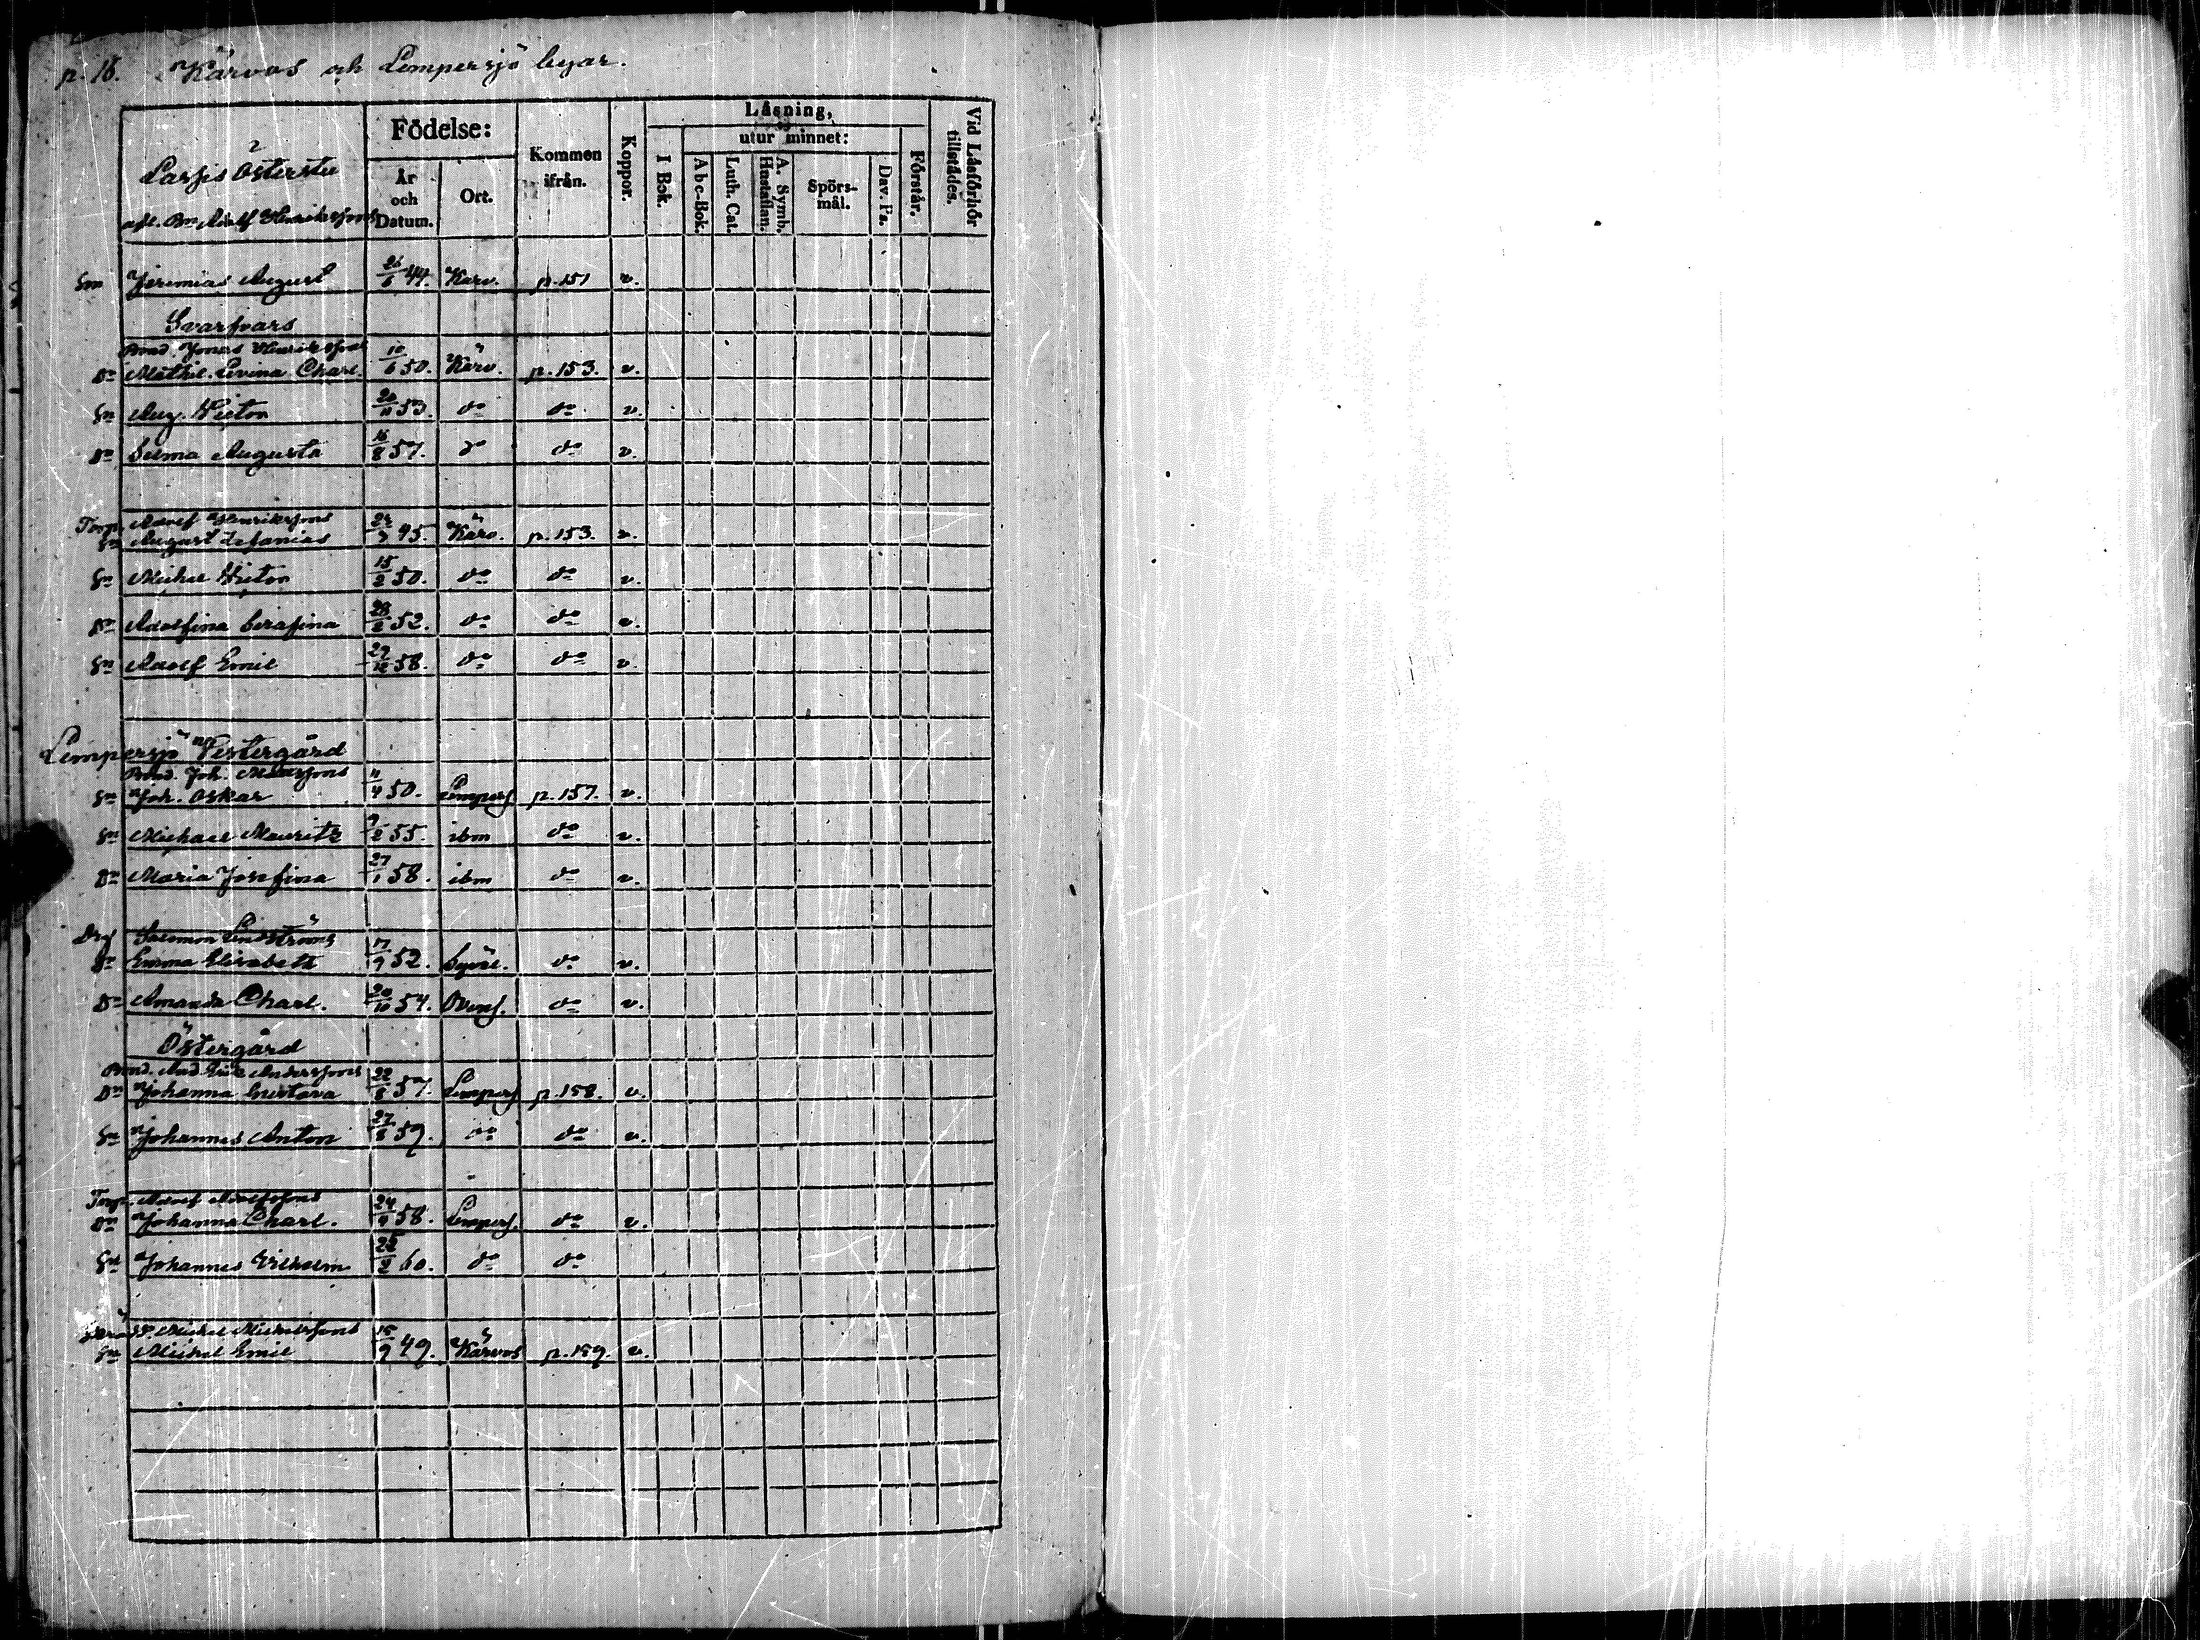 p. 18. Kärvos och Lempersjö byar.
Födelse:
År och Datum.
Ort.
Kommen ifrån.
Koppor.
Läsning,
I Bok.
utur minnet:
Abc-Bok.
Luth. Cat.
A. Symb. Hustaflan.
Spörsmål.
Dav. Ps.
Förstår.
Vid Läsförhör tillstädes.
2
Lassis Österstu
afl. Bn Adolf Henrikssons
Sn Jeremias August 26/6 44. Kärv. p. 151 v.
Svarfvars
Bond. Jonas Henrikssons
Dr Mathil. Lovina Charl. 10/6 50. Kärv. p. 153. v.
Sn Aug. Victor 20/11 53. do do v.
Dr Selma Augusta 16/8 57. do do v.
Torp. Adolf Henrikssons
Sn August Zefanias 45. Kärv. p. 153. v.
Sn Michel Victor 15/2 50. do do v.
Dr Adolfina Serafina 28/2 52. do do v.
Sn Adolf Emil 29/12 58. do do v.
Lempersjö Vestergård
Bond. Joh. Matssons
Sn Joh. Oskar 11/4 50. Lempersj p. 157. v.
Sn Michael Mauritz 9/2 55. ibm do v.
Dr Maria Josefina 27/1 58. ibm do v.
Drg Salomon Lindströms
Dr Emma Elisabeth 17/9 52. do v.
Dr Amanda Charl. 20/10 54. do v.
Östergård
Bond. And. Eric Anderssons
Dr Johanna Gustava 22/8 57. Lempersj p. 158. v.
Sn Johannes Anton 27/8 59. do do v.
Torp. Adolf Adolfssons
Dr Johanna Charl. 24/4 58. Lempersj. do v.
Sn Johannes Vilhelm 60. do do
Michel Michelssons
Sn Michel Emil 15/9 49. Kärvos p. 159. v.